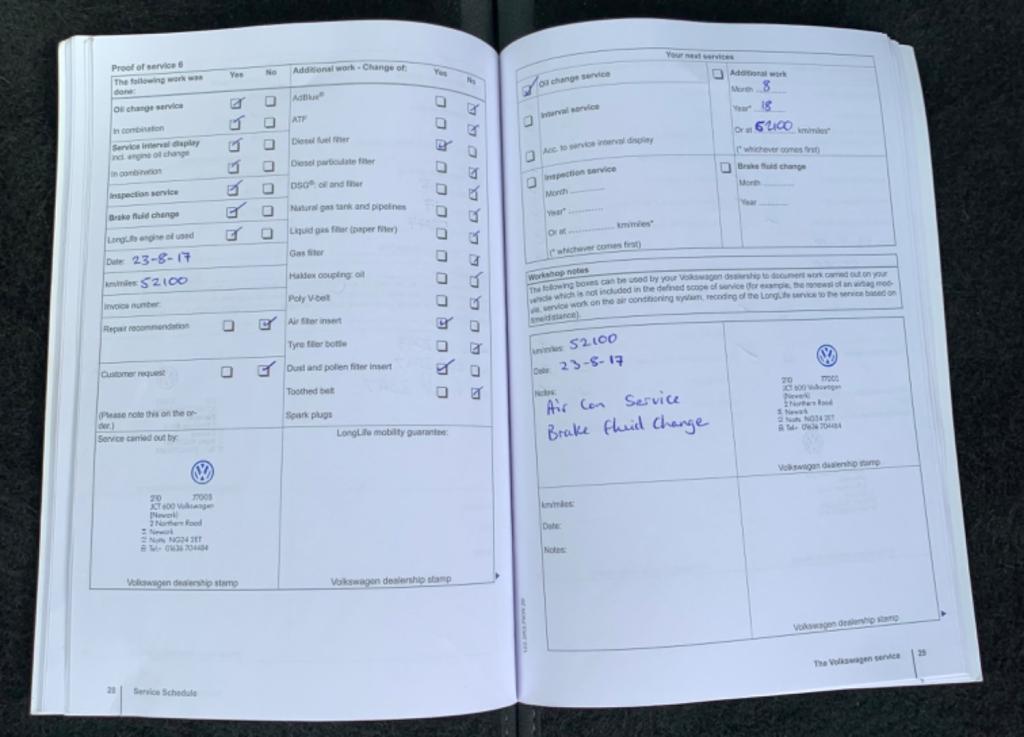 Proof of service 6
The following work was done: Yes No
Oil change service
In combination
Service interval display
incl. engine oil change
In combination
Inspection service
Brake fluid change
LongLife engine oil used
Date: 23-8-17
km/miles: 52100
Invoice number:
Repair recommendation
Customer request
(Please note this on the or-
der.)
Additional work - Change of: Yes No
AdBlue®
ATF
Diesel fuel filter
Diesel particulate filter
DSG®: oil and filter
Natural gas tank and pipelines
Liquid gas filter (paper filter)
Gas filter
Haldex coupling: oil
Poly V-belt
Air filter insert
Tyre filler bottle
Dust and pollen filter insert
Toothed belt
Spark plugs
Service carried out by:
210 77005
JCT 600 Volkswagen
(Newark)
2 Northern Road
Newark
Notts NG24 2ET
Tel:- 01636 704484
Volkswagen dealership stamp
LongLife mobility guarantee:
Volkswagen dealership stamp
28 Service Schedule
Your next services
Oil change service
Interval service
Acc. to service interval display
Inspection service
Month
Year*
Or at km/miles*
(* whichever comes first)
Additional work
Month 8
Year* 18
Or at 62100 km/miles*
(* whichever comes first)
Brake fluid change
Month
Year
Workshop notes
The following boxes can be used by your Volkswagen dealership to document work carried out on your
vehicle which is not included in the defined scope of service (for example, the renewal of an airbag mod-
ule, service work on the air conditioning system, recording of the LongLife service to the service based on
time/distance).
km/miles: 52100
Date: 23-8-17
Notes:
Air Con Service
Brake fluid Change
210 77005
JCT 600 Volkswagen
(Newark)
2 Northern Road
Newark
Notts NG24 2ET
Tel:- 01636 704484
Volkswagen dealership stamp
km/miles:
Date:
Notes:
Volkswagen dealership stamp
The Volkswagen service 29